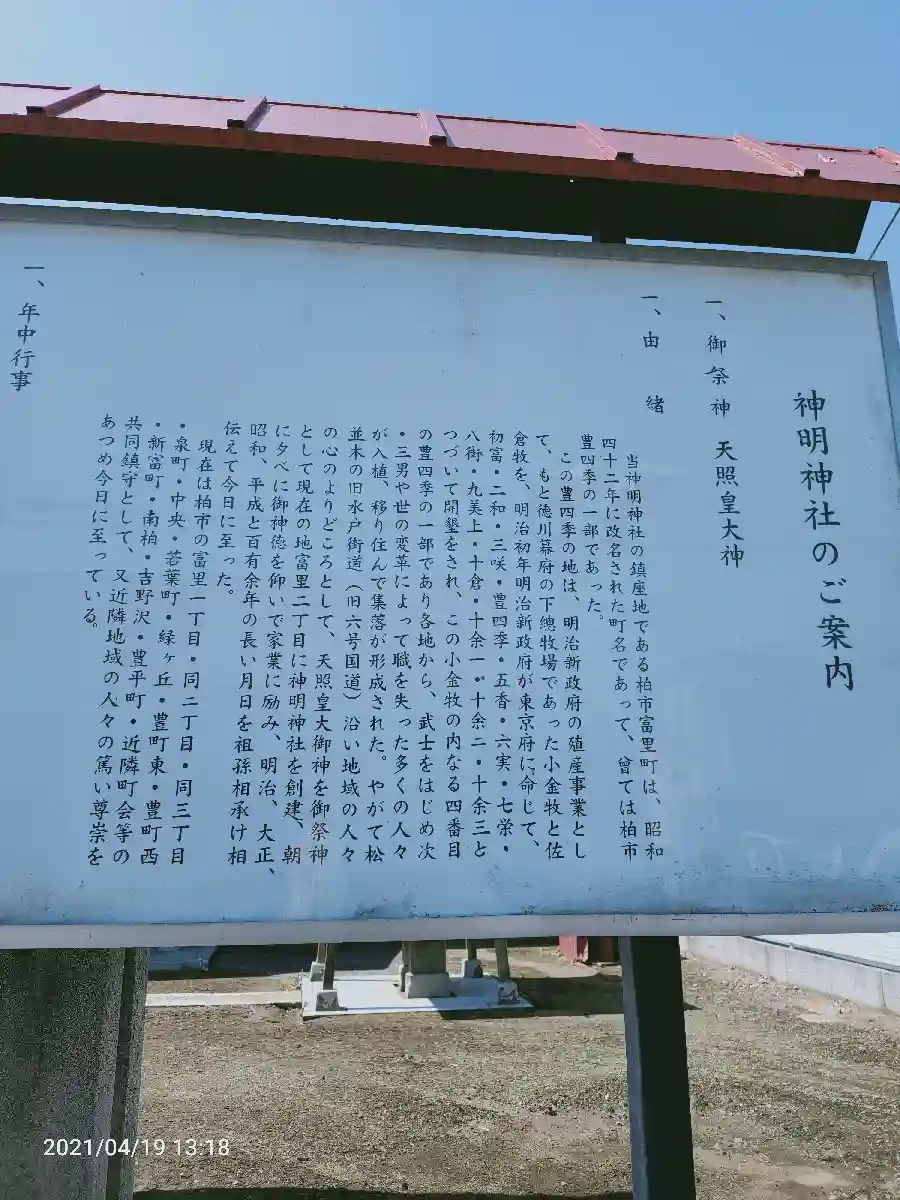 神明神社のご案内
一、御祭神　天照皇大神
一、由　緒
当神明神社の鎮座地である柏市富里町は、昭和
四十二年に改名された町名であって、曾ては柏市
豊四季の一部であった。
この豊四季の地は、明治新政府の殖産事業とし
て、もと徳川幕府の下總牧場であった小金牧と佐
倉牧を、明治初年明治新政府が東京府に命じて、
初富・二和・三咲・豊四季・五香・六実・七栄・
八街・九美上・十倉・十余一・十余二・十余三と
つづいて開墾をされ、この小金牧の内なる四番目
の豊四季の一部であり各地から、武士をはじめ次
・三男や世の変革によって職を失った多くの人々
が入植、移り住んで集落が形成された。やがて松
並木の旧水戸街道（旧六号国道）沿い地域の人々
の心のよりどころとして、天照皇大御神を御祭神
として現在の地富里二丁目に神明神社を創建、朝
に夕べに御神徳を仰いで家業に励み、明治、大正、
昭和、平成と百有余年の長い月日を祖孫相承け相
伝えて今日に至った。
現在は柏市の富里一丁目・同二丁目・同三丁目
・泉町・中央・若葉町・緑ヶ丘・豊町東・豊町西
・新富町・南柏・吉野沢・豊平町・近隣町会等の
共同鎮守として、又近隣地域の人々の篤い尊崇を
あつめ今日に至っている。
一、年中行事
2021/04/19 13:18